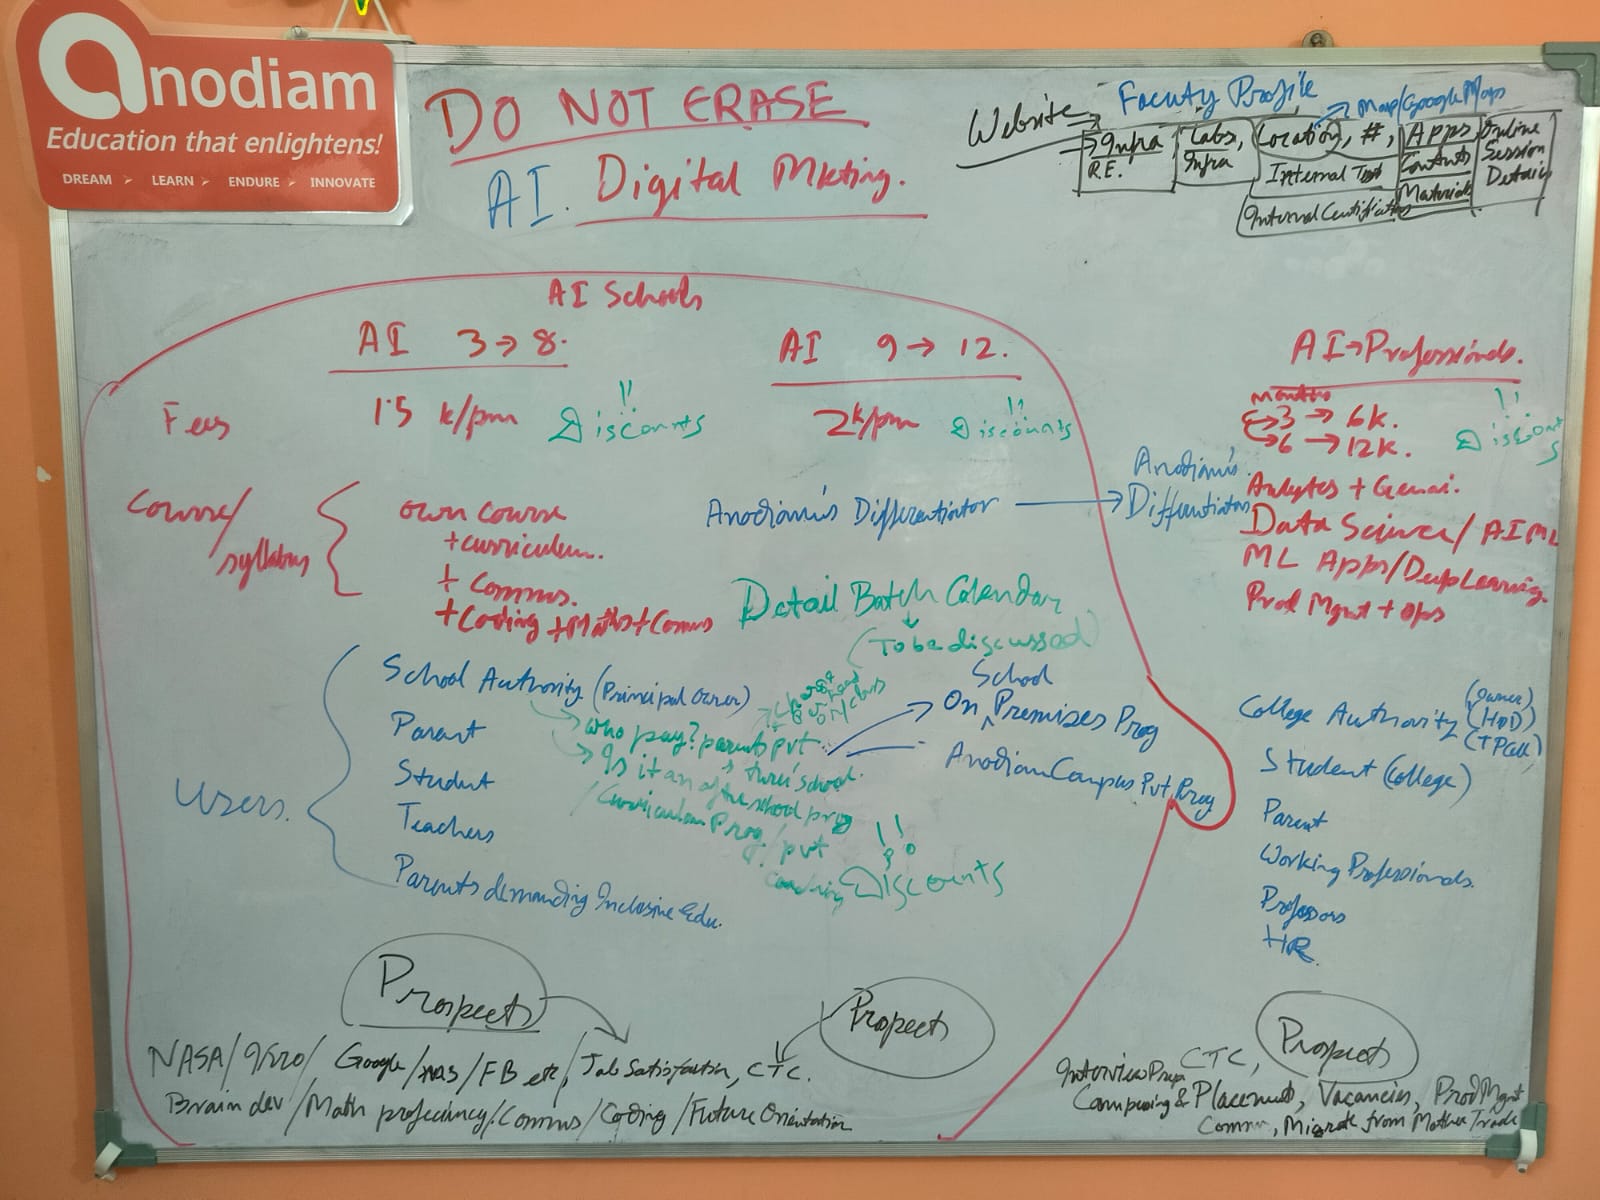 anodiam
Education that enlightens!
DREAM > LEARN > ENDURE > INNOVATE
DO NOT ERASE
AI. Digital Mkting.
Website
Facuty Profile
Map/Google Maps
Infra
R.E.
Labs,
Infra
Location, #,
Internal Test
Internal Certification
Apps
Contents
Materials
Online
Session
Details
AI Schools
AI 3→8.
AI 9→12.
AI→Professionals.
Fees
1.5 k/pm
!!
Discounts
2k/pm
!!
Discounts
Months
3→6k.
6→12k.
!!
Discounts
Course/
syllabus
own course
+curriculum.
+ Comms.
+Coding +Maths+Comms
Anodiam's Differentiator
Anodiam's
Differentiators
Analytcs + Genai.
Data Science/ AIML
ML Apps/DeepLearning.
Prod Mgmt + Ops
Detail Batch Calendar
(To be discussed)
Users.
School Authority (Principal owner)
Parent
Student
Teachers
Parents demanding Inclusive Edu.
who pay? parents pvt
thru' school.
Is it an after school prog
/Curriculum Prog/pvt
coaching
!!
Discounts
School
On Premises Prog
Anodiam Campus Pvt Prog
College Authority
(owner)
(HOD)
(TPCell)
Student (College)
Parent
Working Professionals.
Professors
HR
Prospects
Prospects
NASA/ISRO/ Google/ /FB etc, Job Satisfaction, CTC.
Brain dev/Math proficiency/Comms/Coding/Future Orientation
Prospects
Interview Prep
CTC,
Campusing & Placements, Vacancies, Prod Mgmt
Comm, Migrate from Mother Trade